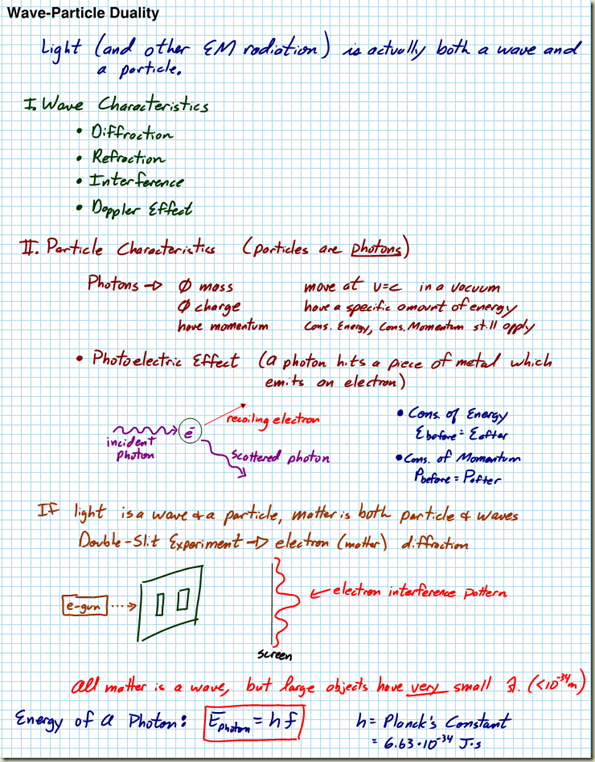 Wave-Particle Duality
Light (and other EM radiation) is actually both a wave and
a particle.
I. Wave Characteristics
• Diffraction
• Refraction
• Interference
• Doppler Effect
II. Particle Characteristics (particles are photons)
Photons → Ø mass move at v=c in a vacuum
Ø charge have a specific amount of energy
have momentum Cons. Energy, Cons. Momentum still apply
• Photoelectric Effect (a photon hits a piece of metal which
emits an electron)
recoiling electron
e⁻
incident
photon
scattered photon
• Cons. of Energy
Ebefore = Eafter
• Cons. of Momentum
Pbefore = Pafter
If light is a wave & a particle, matter is both particle & waves
Double-Slit Experiment → electron (matter) diffraction
e-gun
electron interference pattern
screen
All matter is a wave, but large objects have very small λ. (<10⁻³⁴m)
Energy of a Photon: EPhoton = hf h = Planck's Constant
= 6.63·10⁻³⁴ J·s